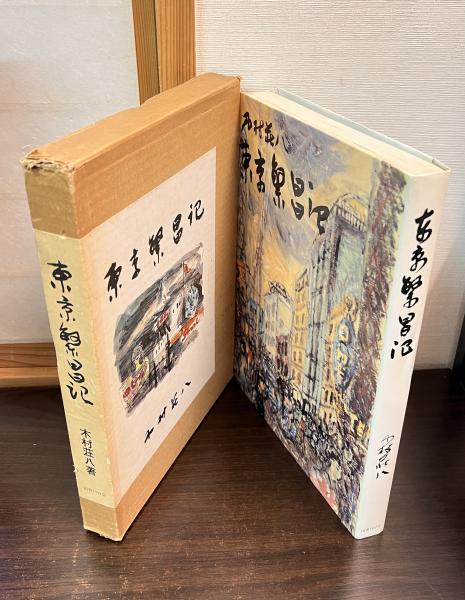 東京繁昌記
木村荘八著
東京繁昌記
木村荘八
木村荘八
東京繁昌記
東京繁昌記
木村荘八